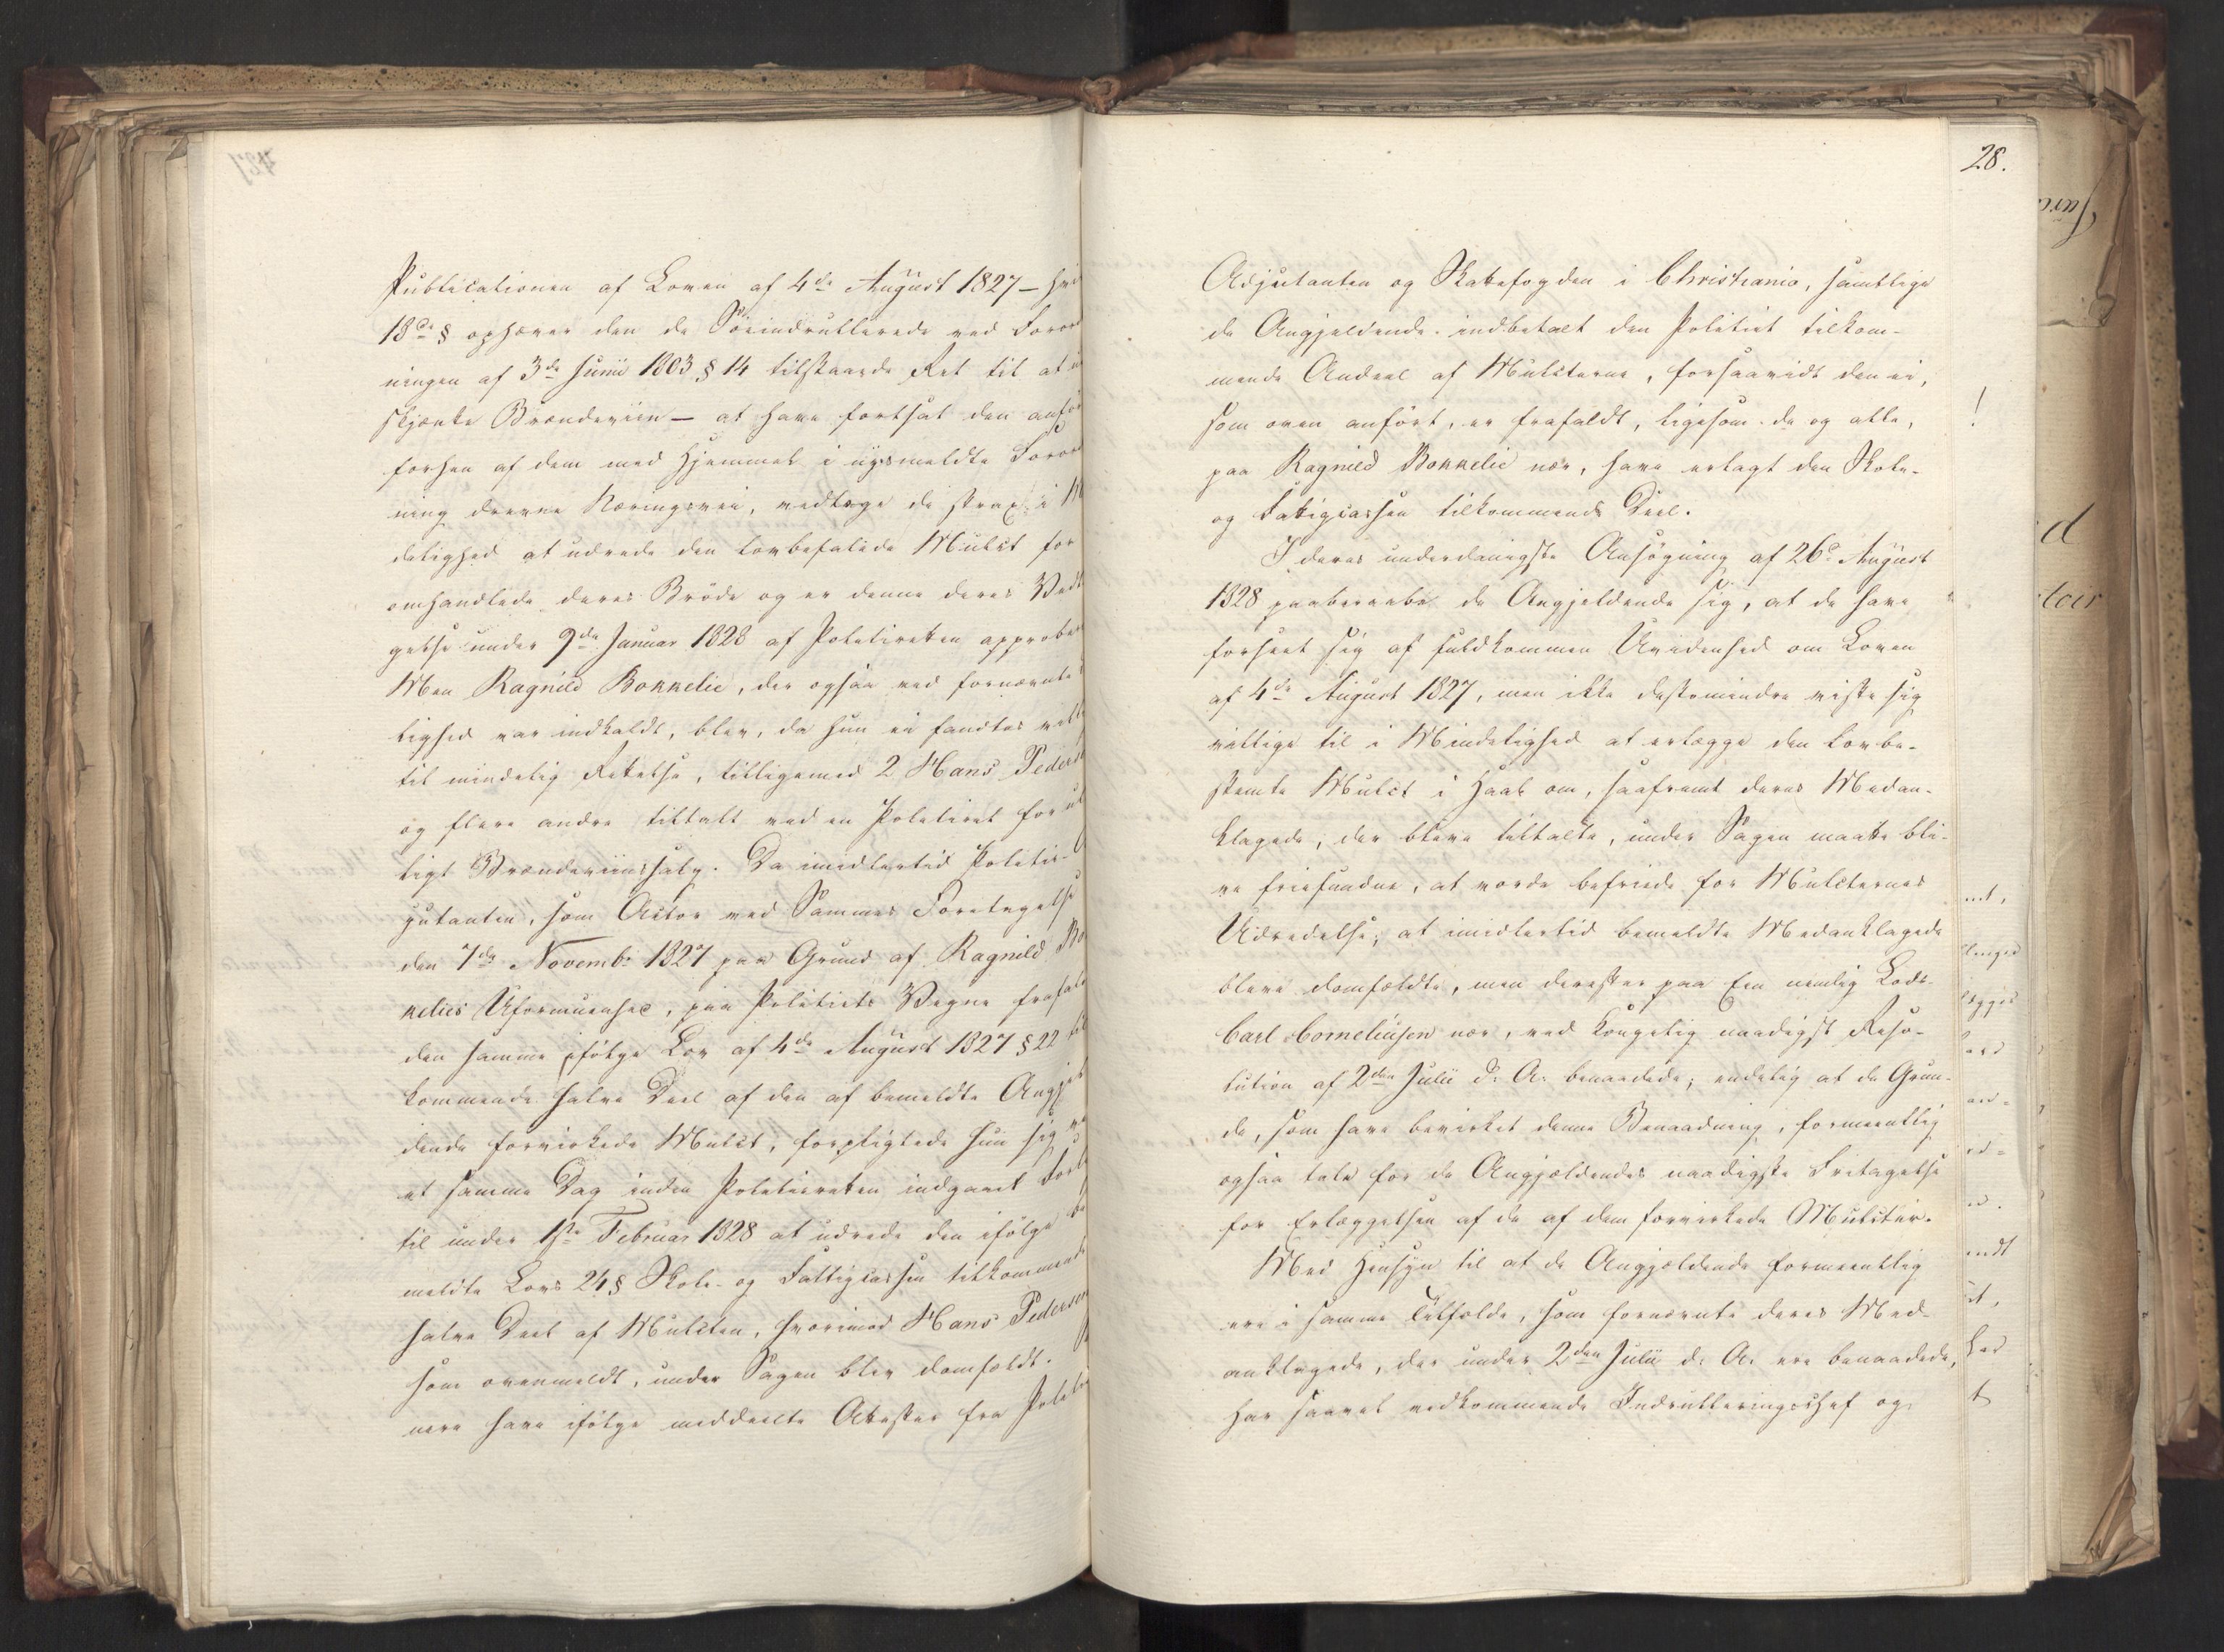 Publicationen af Loven af 4de August 1827 – hvis
18de § ophæver den de Söeindrullerede ved Forord
ningen af 3de Junii 1803 § 14 tilstaaede Ret til at
skjænke Brændeviin – at have fortsat den
forhen af dem med Hjemmel i nysmeldte Forord
ning drevne Næringsvei, vedtoge de strax i Min
delighed at udrede den lovbefalede Mulct for
omhandlede deres Bröde og er denne deres Vedta
gelse under 9de Januar 1828 af Politiretten approberet
Men Ragnild Bokkelie, der ogsaa ved fornævnte
lighed var indkaldt, blev, da hun ei fandtes villig
til mindelig Rettelse, tilligemed 2 Hans Pedersen
og flere andre tiltalt ved en Politiret for ulov
ligt Brændeviinssalg. Da imidlertid Politie-
jutanten, som Actor ved Sammes Foretagelse
den 7de Novembr 1827 paa Grund af Ragnild Bo
kelies Uformuenhed, paa Politiets Vegne frafaldt
den samme ifölge Lov af 4de August 1827 § 22 til
kommende halve Deel af den af bemeldte Angjel
dende forvirkede Mulct, forpligtede hun sig ved
et samme Dag inden Politieretten indgaaet Forlig
til under 1ste Februar 1828 at udrede den ifölge be
meldte Lovs 24 § Skole- og Fattigcassen tilkommende
halve Deel af Mulcten, hvorimod Hans Pedersen
som ovenmeldt, under Sagen blev domfældt.
nere have ifölge meddeelte Attester fra Politie
28.
Adjutanten og Skattefogden i Christiania, samtlige
de Angjeldende indbetalt den Politiet tilkom-
mende Andeel af Mulcterne, forsaavidt den ei,
som oven anfört, er frafaldt, ligesom de og alle, !
paa Ragnild Bokkelie nær, have erlagt den Skole-
og Fattigcassen tilkommende Deel.
I deres underdanigste Ansögning af 26de August
1828 paaberaabe de Angjeldende sig, at de have
forseet sig af fuldkommen Uvidenhed om Loven
af 4de August 1827, men ikke destomindre viste sig
villige til i Mindelighed at erlægge den lovbe-
stemte Mulct i Haab om, saafremt deres Medan-
klagede, der bleve tiltalte, under Sagen maatte bli-
ve friefundne, at vorde befriede for Mulcternes
Udredelse; at imidlertid bemeldte Medanklagede
bleve domfældte, men derefter paa Een nemlig Lods
Carl Corneliusen nær, ved Kongelig naadigst Reso-
lution af 2den Julii d. A. benaadede; endelig at de Grun-
de, som have bevirket denne Benaadning, formeentlig
ogsaa tale for de Angjældendes naadigste Fritagelse
for Erlæggelsen af de af dem forvirkede Mulcter.
Med Hensyn til at de Angjældende formeentlig
ere i samme Tilfælde, som fornævnte deres Med-
anklagede, der under 2den Julii d. A. ere benaadede,
har saavel vedkommende Indrulleringschef og